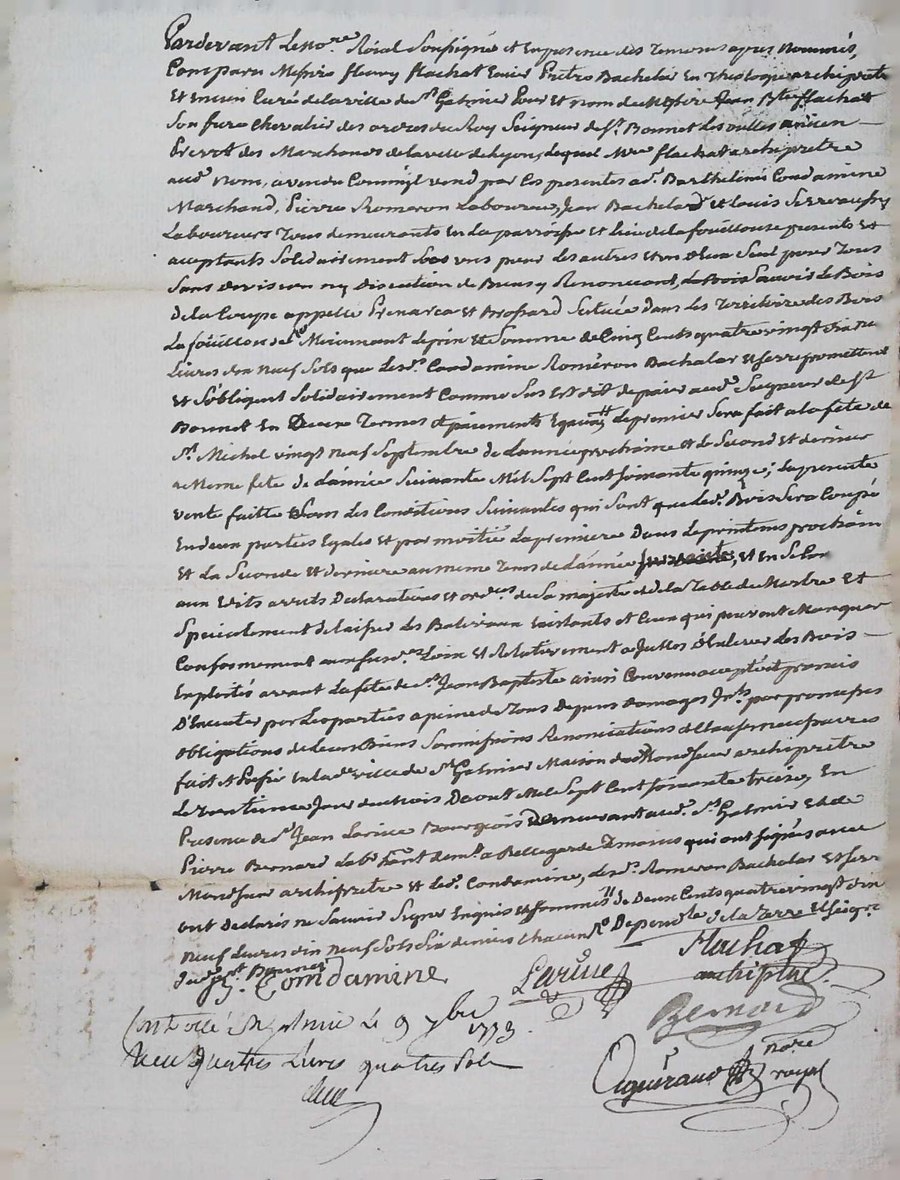 Pardevant Le no.re Roial Soussigné et En presence des Temoins apres Nommés,
Comparu Messire fleury flachat Ecuier Prêtre Bachelier En Theologie archiprêtre
Et encien Curé de la ville de St Galmier Pour et nom de Messire Jean Bte flachat
Son frere Chevalier des ordres du Roy Seigneur de St. Bonnet Les oulles ancien
Prevot des Marchands de la ville de Lyon, Lequel Mre flachat archiprêtre
aud. nom, a vendu Comm'il vend par Ces presentes a Sr. Barthelemi Condamine
Marchand, Pierre Romeron Laboureur, Jean Bachelard et Louis Serre aussy
Laboureurs Tous demeurants En La parroisse et Lieu de la fouillouse presents et
aceptants Solidairement Les uns pour Les autres et un d'Eux Seul pour Tous
Sans division ny Discution de Biens y Renonceant, Le Bois Le Bois
de la Coupe appellé et Brossard Situés dans Les Territoire des Bois
La foüillouse Moiennant Le prix et Somme de Cinq Cents quatre vingt dix neuf
Livres dix neuf Sols que Lesd. Condamine Romeron Bachelar et Serre promettent
Et S'obligent Solidairement Comme Sus Est dit de paier aud. Seigneur de St
Bonnet En Deux Termes et paiements Egaux Le premier Sera fait a la fete de
St. Michel vingt neuf Septembre de L'année prochaine et Le Second et dernier
a Meme fete de L'année Suivante Mil Sept Cent Soixante quinze; La presente
vente faitte Sous Les Conditions Suivantes qui Sont que Led. Bois Sera Coupé
En deux parties Egales Et par moitié La premiere Dans Le printems prochain
Et La Seconde Et derniere au meme Tems de L'année, et en Selon
aux Edits arrets Declarations et ord.ces de Sa majesté et de la Table de Marbre Et
Spécialement de laisser Les Baliveaux Existants et Ceux qui peuvent Manquer
Conformement Loix Et Relativement a Icelles d'Enlever Les Bois
Exploités avant La fête de St. Jean Baptiste ainsi Convenu accepté et promis
D'Executer par Les parties a peine de Tous Depens domages Jn.ts par promesses
obligations de Leurs Biens Soumissions Renonciations et Clauses
fait Et Passé En Lad. ville de St Galmier Maison de Mondit Sieur archiprêtre
Le Trentieme Jour du Mois D'aout Mil Sept Cent Soixante Treize, En
Presence de Sr Jean Larive Bourgeois Demeurant aud. St. Galmier Et de
Pierre Bernard dem.t a Bellegarde Temoins qui ont Signés avec
Mondit Sieur archiprêtre et Led. Condamine, Lesd. Romeron Bachelar Et Serre
ont declaré ne Savoir Signer Enquis et Sommés de Deux Cents quatre vingt dix
Neuf Livres dix neuf Sols Six deniers Chacun Depend de la Terre et Seigrie
dud. St Bonnet
Condamine Larive Flachat
archiptre
Bernard
Controllé a St Galmier Le 9 7bre 1773.
Reçu Quatres Livres quatres Sols
nore
royal